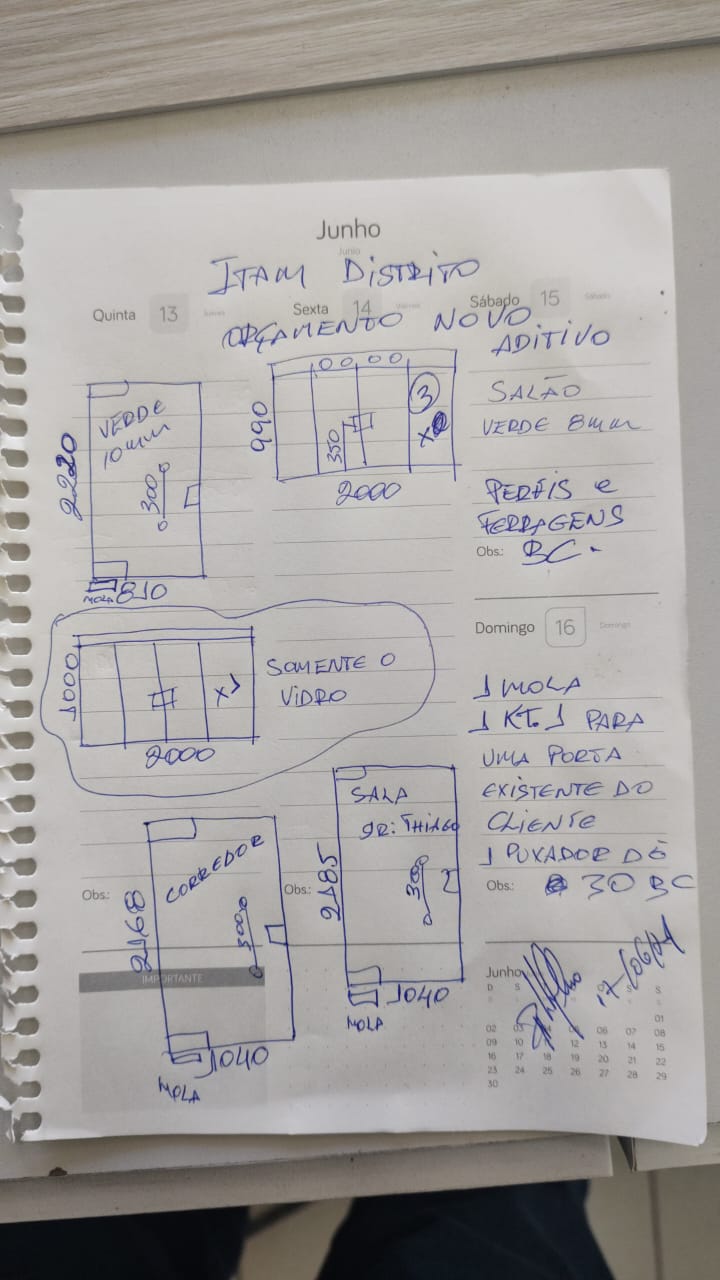 Junho
Junio
ITAM DISTRITO
Quinta 13 Jueves
Sexta 14 Viernes
Sábado 15 Sábado
ORÇAMENTO NOVO
ADITIVO
VERDE
10mm
2220
300
MOLA 810
990
350
3
X
2000
SALÃO
VERDE 8mm
PERFIS e
FERRAGENS
Obs.: BC.
Domingo 16 Domingo
1000
X
2000
SOMENTE O
VIDRO
1 MOLA
1 KT. 1 PARA
UMA PORTA
EXISTENTE DO
CLIENTE
1 PUXADOR DE
Obs.: 30 BC
Obs.:
CORREDOR
2168
300
1040
MOLA
Obs.:
SALA
DR: THIAGO
2185
300
1040
MOLA
IMPORTANTE
Junho
D S S S
01
02 06 07 08
09 10 12 13 14 15
16 17 18 19 20 21 22
23 24 25 26 27 28 29
30